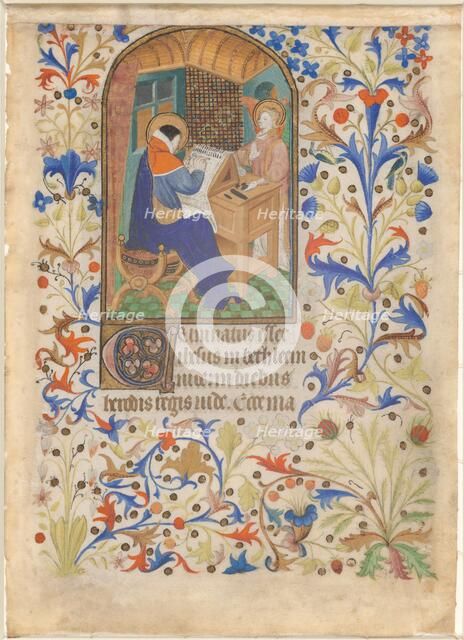 Cum natus esset
ihesus in bethleem
iude in diebus
herodis regis iude. Ecce ma
Heritage
Heritage
Heritage
Heritage
Heritage
Heritage